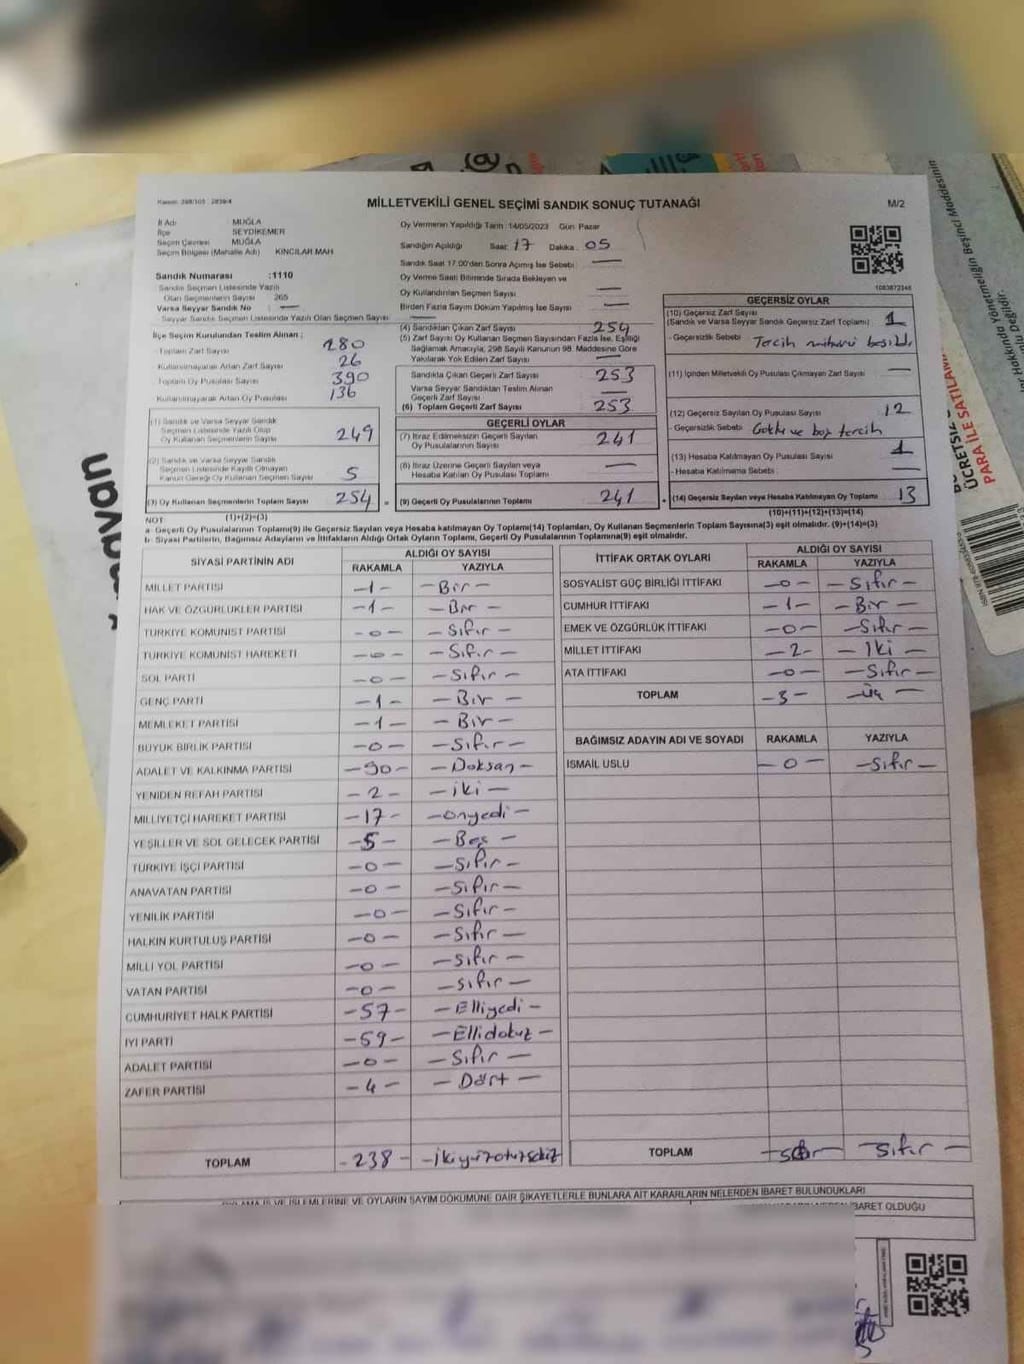 MİLLETVEKİLİ GENEL SEÇİMİ SANDIK SONUÇ TUTANAĞI
M/2
İl Adı MUĞLA
İlçe SEYDİKEMER
Seçim Çevresi MUĞLA
Seçim Bölgesi (Mahalle Adı) KINCILAR MAH
Oy Vermenin Yapıldığı Tarih 14/05/2023 Gün Pazar
Sandığın Açıldığı Saat: 17 Dakika: 05
Sandık Saat 17:00'den Sonra Açılmış İse Sebebi
Oy Verme Saati Bitiminde Sırada Bekleyen ve
Oy Kullandırılan Seçmen Sayısı
Birden Fazla Sayım Döküm Yapılmış İse Sayısı
Sandık Numarası :1110
Sandık Seçmen Listesinde Yazılı
Olan Seçmenlerin Sayısı 265
Varsa Seyyar Sandık No
Seyyar Sandık Seçmen Listesinde Yazılı Olan Seçmen Sayısı
İlçe Seçim Kurulundan Teslim Alınan ;
Toplam Zarf Sayısı 280
Kullanılmayarak Artan Zarf Sayısı 26
Toplam Oy Pusulası Sayısı 390
Kullanılmayarak Artan Oy Pusulası 136
(1) Sandık ve Varsa Seyyar Sandık
Seçmen Listesinde Yazılı Olup
Oy Kullanan Seçmenlerin Sayısı 249
(2) Sandık ve Varsa Seyyar Sandık
Seçmen Listesinde Kayıtlı Olmayan
Kanun Gereği Oy Kullanan Seçmen Sayısı 5
(3) Oy Kullanan Seçmenlerin Toplam Sayısı 254
(1)+(2)=(3)
(4) Sandıktan Çıkan Zarf Sayısı 254
(5) Zarf Sayısı Oy Kullanan Seçmen Sayısından Fazla İse, Eşitliği
Sağlamak Amacıyla, 298 Sayılı Kanunun 98. Maddesine Göre
Yakılarak Yok Edilen Zarf Sayısı
Sandıkta Çıkan Geçerli Zarf Sayısı 253
Varsa Seyyar Sandıktan Teslim Alınan
Geçerli Zarf Sayısı
(6) Toplam Geçerli Zarf Sayısı 253
GEÇERLİ OYLAR
(7) İtiraz Edilmeksizin Geçerli Sayılan
Oy Pusulalarının Sayısı 241
(8) İtiraz Üzerine Geçerli Sayılan veya
Hesaba Katılan Oy Pusulası Toplamı
(9) Geçerli Oy Pusulalarının Toplamı 241
1083872346
GEÇERSİZ OYLAR
(10) Geçersiz Zarf Sayısı
(Sandık ve Varsa Seyyar Sandık Geçersiz Zarf Toplamı) 1
- Geçersizlik Sebebi Tercih mührü basıldı
(11) İçinden Milletvekili Oy Pusulası Çıkmayan Zarf Sayısı
(12) Geçersiz Sayılan Oy Pusulası Sayısı 12
- Geçersizlik Sebebi Çoklu ve boş tercih
(13) Hesaba Katılmayan Oy Pusulası Sayısı 1
- Hesaba Katılmama Sebebi
(14) Geçersiz Sayılan veya Hesaba Katılmayan Oy Toplamı 13
(10)+(11)+(12)+(13)=(14)
NOT
a- Geçerli Oy Pusulalarının Toplamı(9) ile Geçersiz Sayılan veya Hesaba katılmayan Oy Toplamı(14) Toplamları, Oy Kullanan Seçmenlerin Toplam Sayısına(3) eşit olmalıdır. (9)+(14)=(3)
b- Siyasi Partilerin, Bağımsız Adayların ve İttifakların Aldığı Ortak Oyların Toplamı, Geçerli Oy Pusulalarının Toplamına(9) eşit olmalıdır.
SİYASİ PARTİNİN ADI ALDIĞI OY SAYISI
RAKAMLA YAZIYLA
MİLLET PARTİSİ -1- -Bir-
HAK VE ÖZGÜRLÜKLER PARTİSİ -1- -Bir-
TÜRKİYE KOMÜNİST PARTİSİ -0- -Sıfır-
TÜRKİYE KOMÜNİST HAREKETİ -0- -Sıfır-
SOL PARTİ -0- -Sıfır-
GENÇ PARTİ -1- -Bir-
MEMLEKET PARTİSİ -1- -Bir-
BÜYÜK BİRLİK PARTİSİ -0- -Sıfır-
ADALET VE KALKINMA PARTİSİ -90- -Doksan-
YENİDEN REFAH PARTİSİ -2- -iki-
MİLLİYETÇİ HAREKET PARTİSİ -17- -onyedi-
YEŞİLLER VE SOL GELECEK PARTİSİ -5- -Beş-
TÜRKİYE İŞÇİ PARTİSİ -0- -Sıfır-
ANAVATAN PARTİSİ -0- -Sıfır-
YENİLİK PARTİSİ -0- -Sıfır-
HALKIN KURTULUŞ PARTİSİ -0- -Sıfır-
MİLLİ YOL PARTİSİ -0- -Sıfır-
VATAN PARTİSİ -0- -Sıfır-
CUMHURİYET HALK PARTİSİ -57- -Elliyedi-
İYİ PARTİ -59- -Ellidokuz-
ADALET PARTİSİ -0- -Sıfır-
ZAFER PARTİSİ -4- -Dört-
TOPLAM -238- -ikiyüzotuzsekiz
İTTİFAK ORTAK OYLARI ALDIĞI OY SAYISI
RAKAMLA YAZIYLA
SOSYALİST GÜÇ BİRLİĞİ İTTİFAKI -0- -Sıfır-
CUMHUR İTTİFAKI -1- -Bir-
EMEK VE ÖZGÜRLÜK İTTİFAKI -0- -Sıfır-
MİLLET İTTİFAKI -2- -İki-
ATA İTTİFAKI -0- -Sıfır-
TOPLAM -3- -Üç-
BAĞIMSIZ ADAYIN ADI VE SOYADI RAKAMLA YAZIYLA
İSMAİL USLU -0- -Sıfır-
TOPLAM -Sıfır-
İŞLEMLERİNE VE OYLARIN SAYIM DÖKÜMÜNE DAİR ŞİKAYETLERLE BUNLARA AİT KARARLARIN NELERDEN İBARET BULUNDUKLARI
İBARET OLDUĞU
ÜCRETSİZ
PARA İLE SATILAMAZ
Hakkında Yönetmeliğin Beşinci Maddesinin